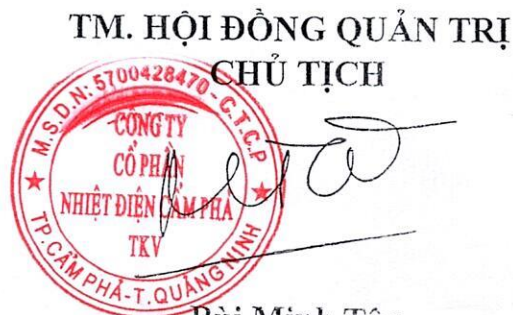 TM. HỘI ĐỒNG QUẢN TRỊ
CHỦ TỊCH
M.S.D.N: 5700428470 - C.T.C.P
CÔNG TY
CỔ PHẦN
NHIỆT ĐIỆN CẨM PHẢ
TKV
TP. CẨM PHẢ - T. QUẢNG NINH
Bùi Minh